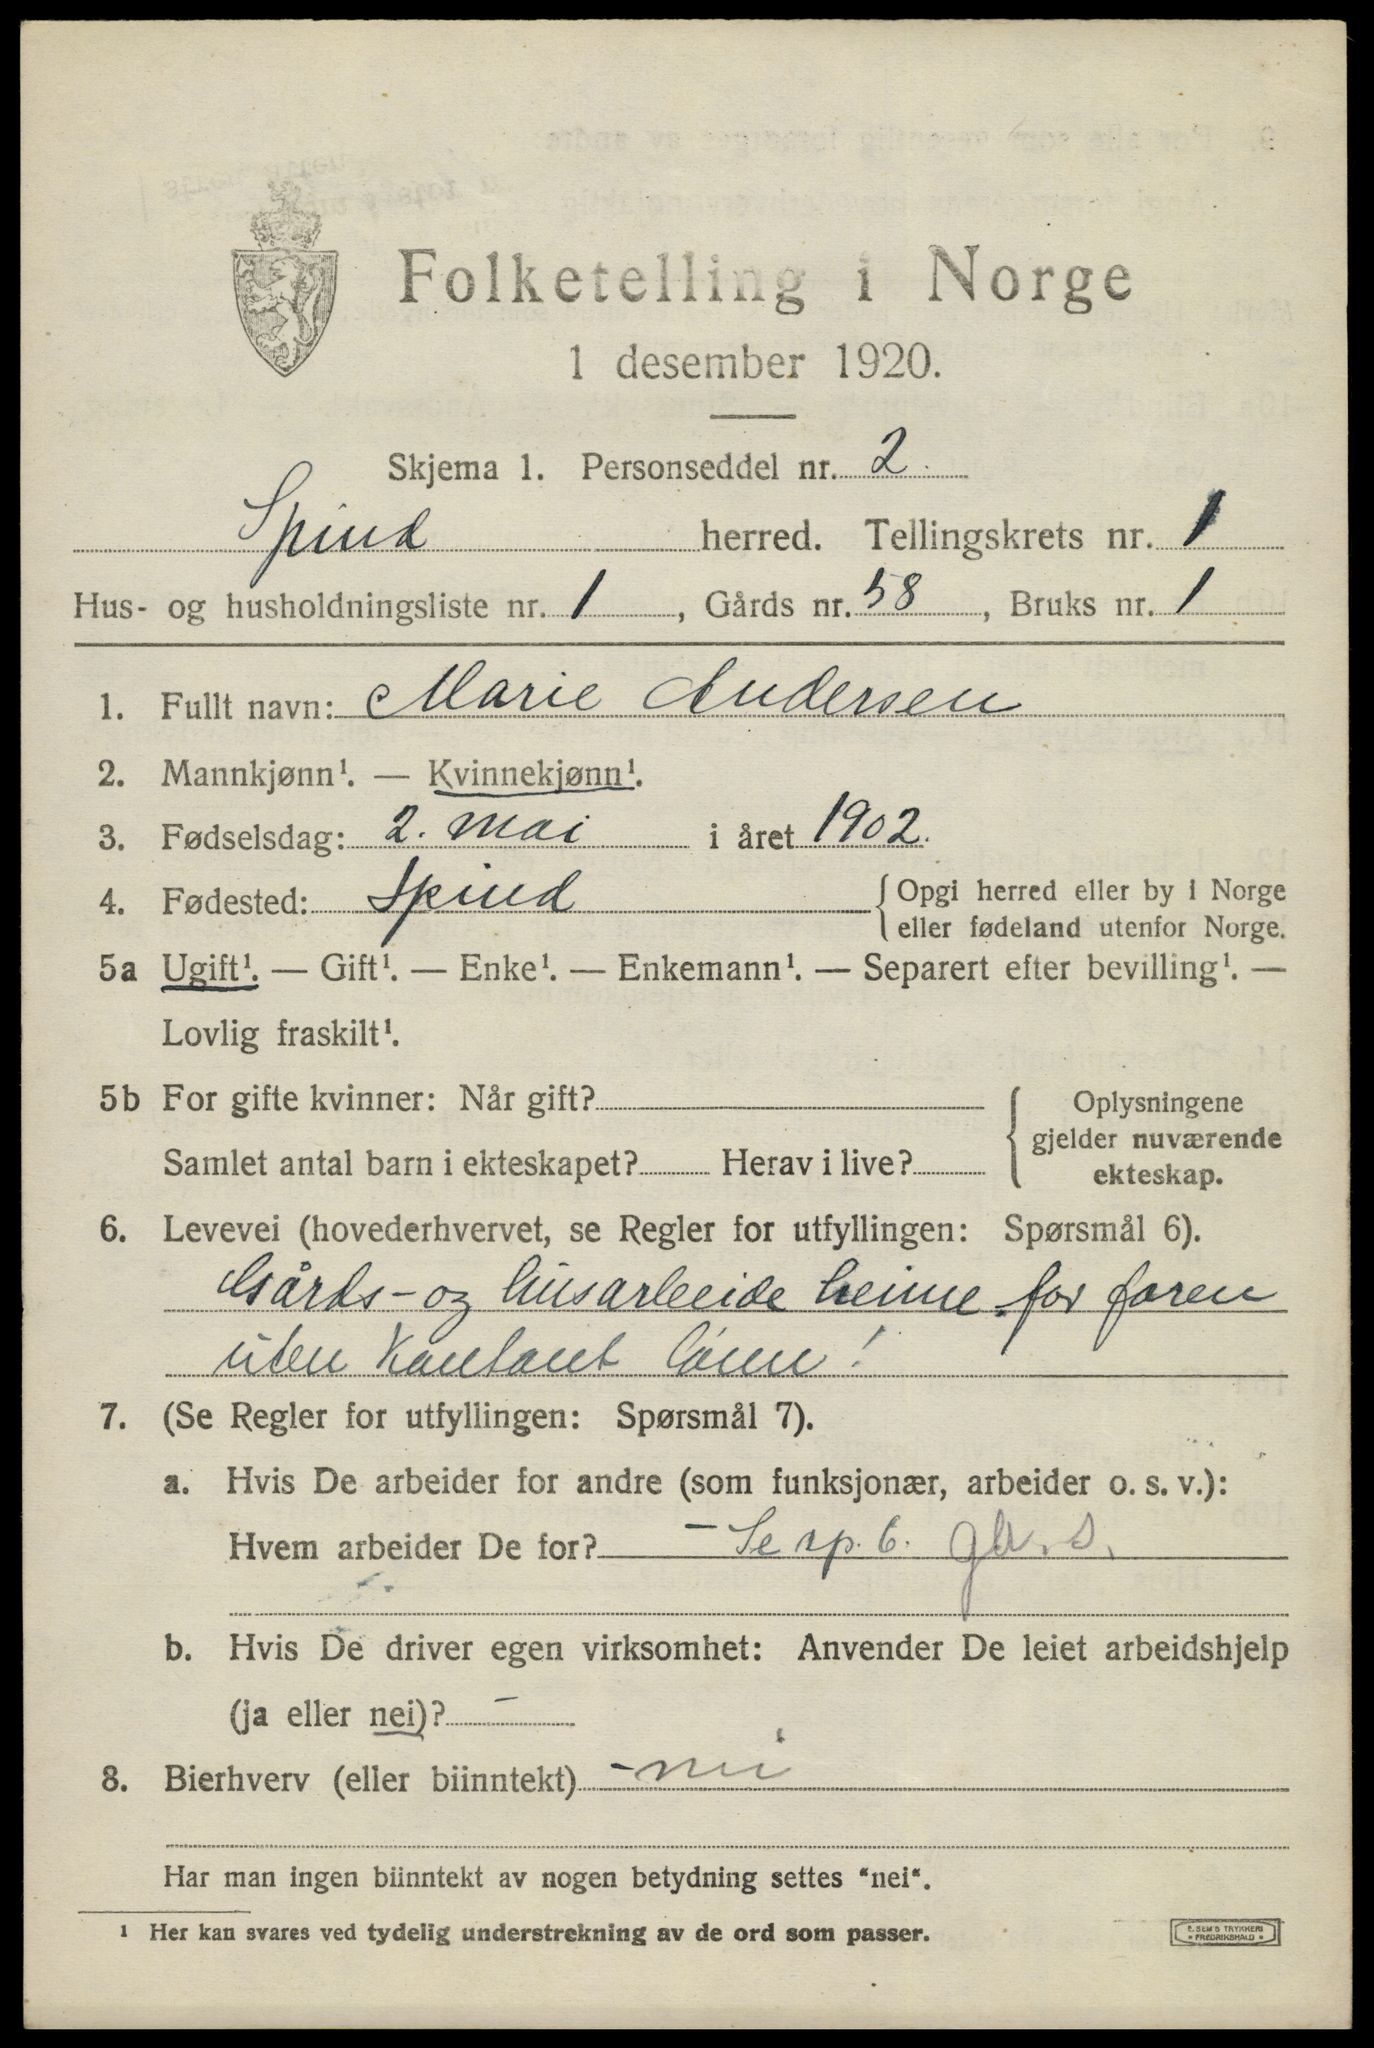 Folketelling i Norge
1 desember 1920.
Skjema 1. Personseddel nr. 2.
Spind herred. Tellingskrets nr. 1
Hus- og husholdningsliste nr. 1, Gårds nr. 58, Bruks nr. 1
1. Fullt navn: Marie Andersen
2. Mannkjønn¹. — Kvinnekjønn¹.
3. Fødselsdag: 2. mai i året 1902.
4. Fødested: Spind {Opgi herred eller by i Norge
eller fødeland utenfor Norge.
5a Ugift¹. — Gift¹. — Enke¹. — Enkemann¹. — Separert efter bevilling¹. —
Lovlig fraskilt¹.
5b For gifte kvinner: Når gift?
Samlet antal barn i ekteskapet? Herav i live?
{ Oplysningene
gjelder nuværende
ekteskap.
6. Levevei (hovederhvervet, se Regler for utfyllingen: Spørsmål 6).
Gårds- og husarbeide heime for faren
uten kontant lønn!
7. (Se Regler for utfyllingen: Spørsmål 7).
a. Hvis De arbeider for andre (som funksjonær, arbeider o. s. v.):
Hvem arbeider De for? – Se sp. 6. gbr. s.
b. Hvis De driver egen virksomhet: Anvender De leiet arbeidshjelp
(ja eller nei)? –
8. Bierhverv (eller biinntekt) – nei
Har man ingen biinntekt av nogen betydning settes "nei".
1 Her kan svares ved tydelig understrekning av de ord som passer.
E. SEM'S TRYKKERI
FREDRIKSHALD